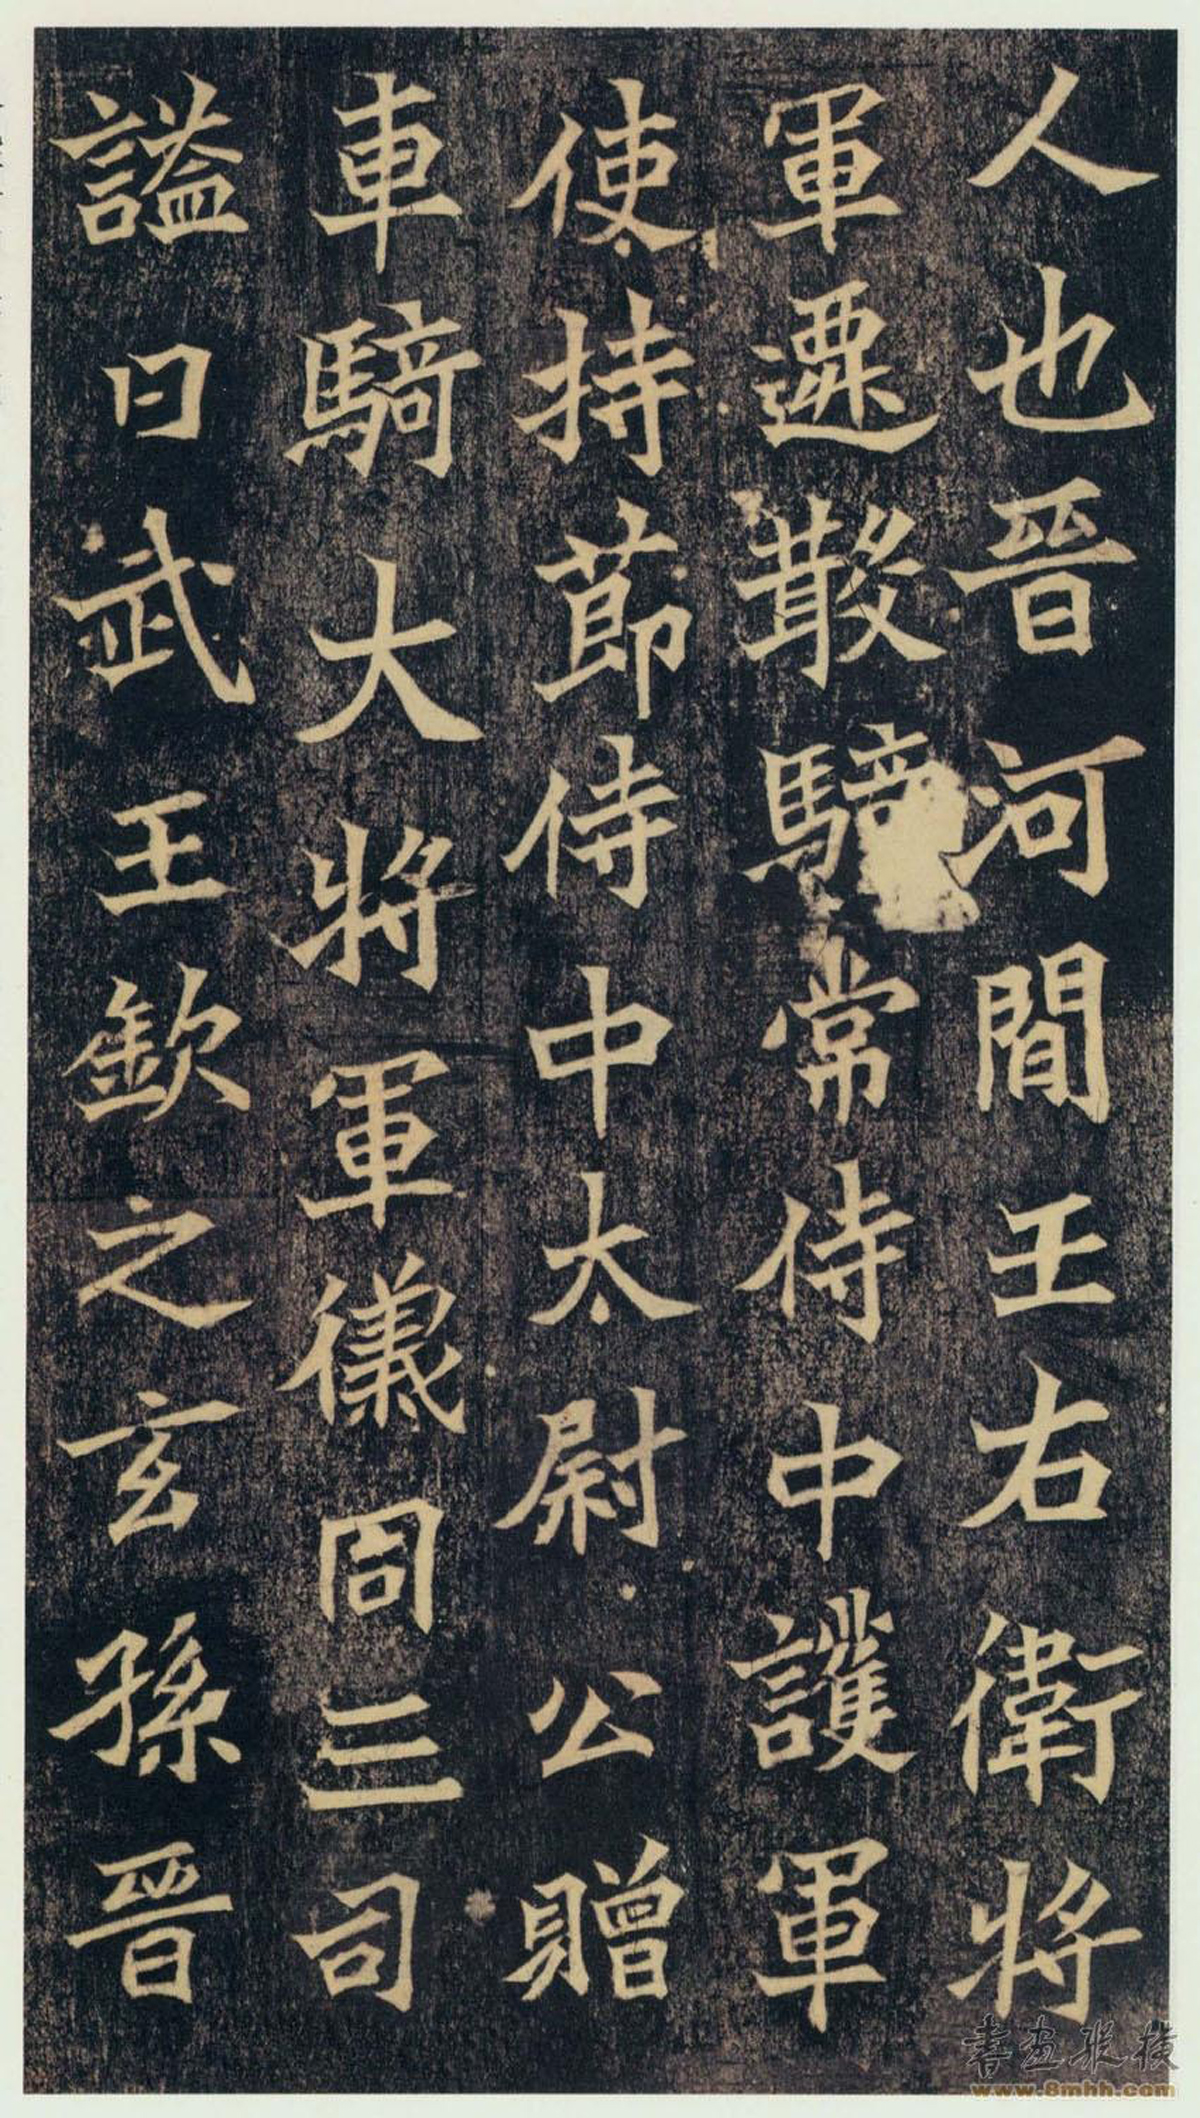 人也晉河間王右衛將
軍遷散騎常侍中護軍
使持節侍中太尉公贈
車騎大將軍儀同三司
謚曰武王欽之玄孫晉
書畫縱橫
www.8mhh.com